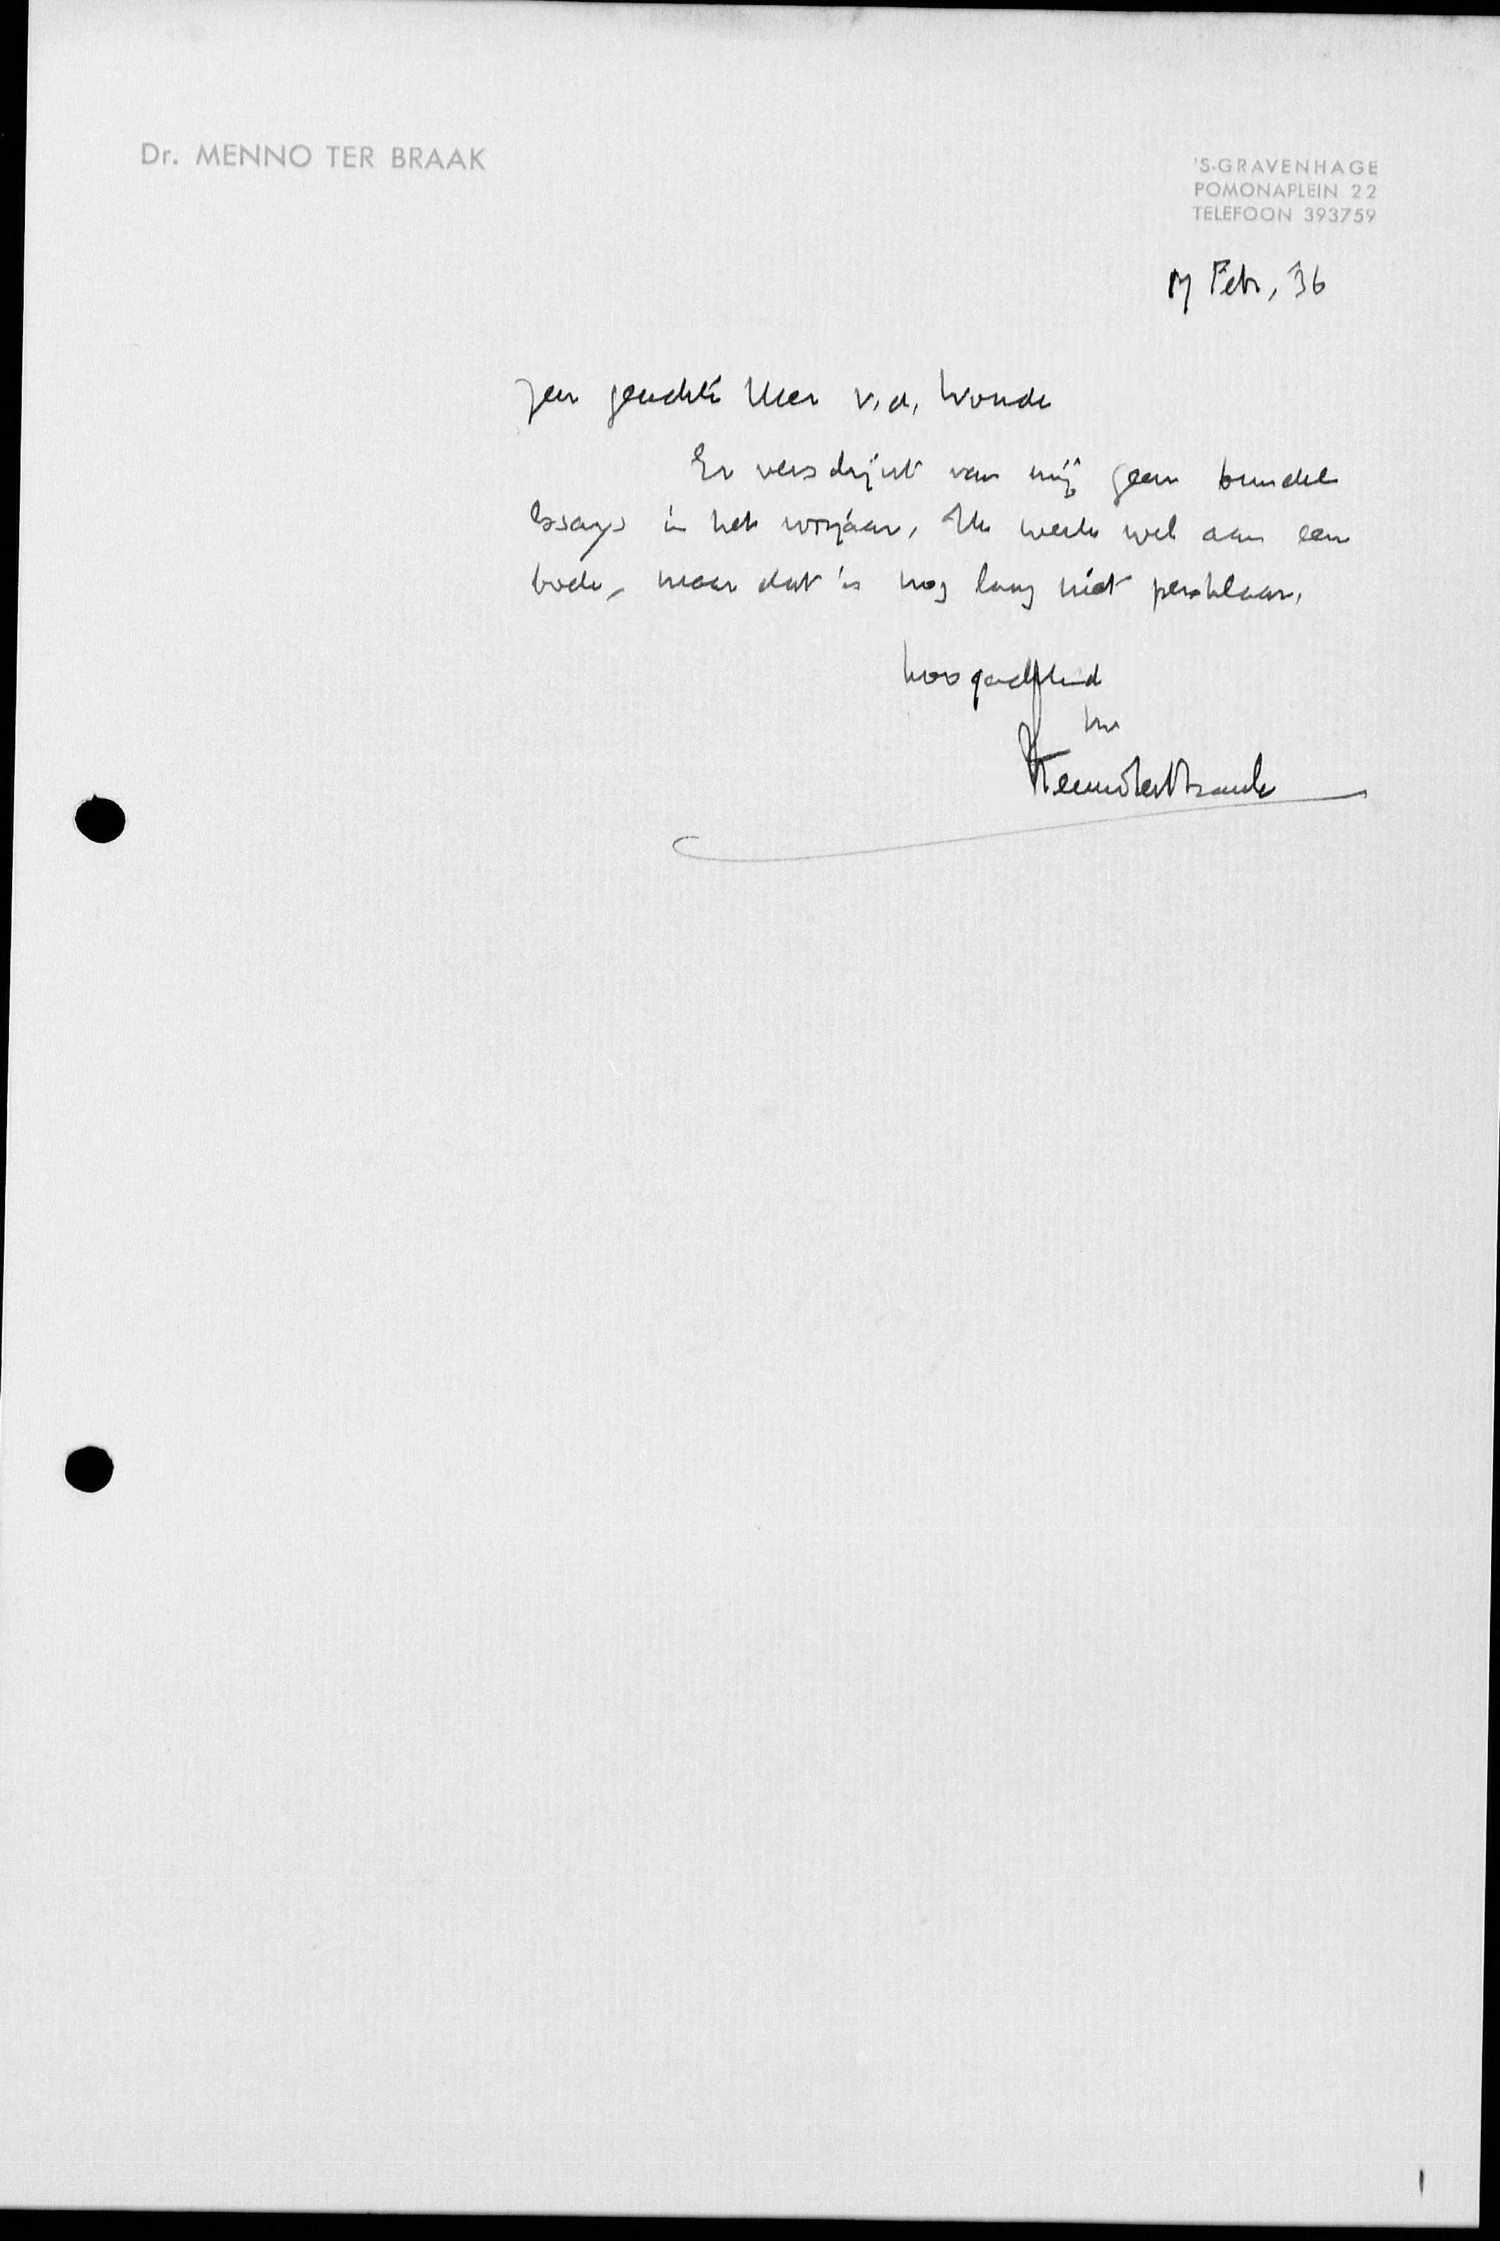 Dr. MENNO TER BRAAK
'S-GRAVENHAGE
POMONAPLEIN 22
TELEFOON 393759
17 Febr, 36
Zeer geachte Heer v.d. Woude
Er verschijnt van mij geen bundel
Essays in het voorjaar. Ik werk wel aan een
boek, maar dat is nog lang niet persklaar.
hoogachtend
Uw
Menno ter Braak